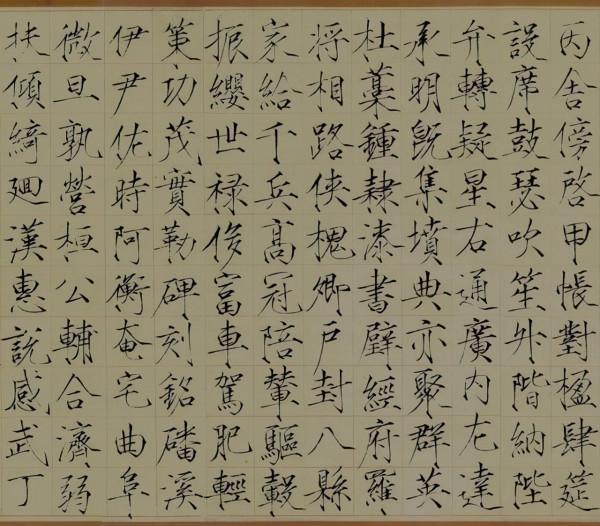 丙舍傍啓甲帳對楹肆筵
設席鼓瑟吹笙升階納陛
弁轉疑星右通廣內左達
承明既集墳典亦聚群英
杜藁鍾隸漆書壁經府羅
将相路俠槐卿戶封八縣
家給千兵高冠陪輦驅轂
振纓世祿侈富車駕肥輕
策功茂實勒碑刻銘磻溪
伊尹佐時阿衡奄宅曲阜
微旦孰營桓公輔合濟弱
扶傾綺廻漢惠説感武丁